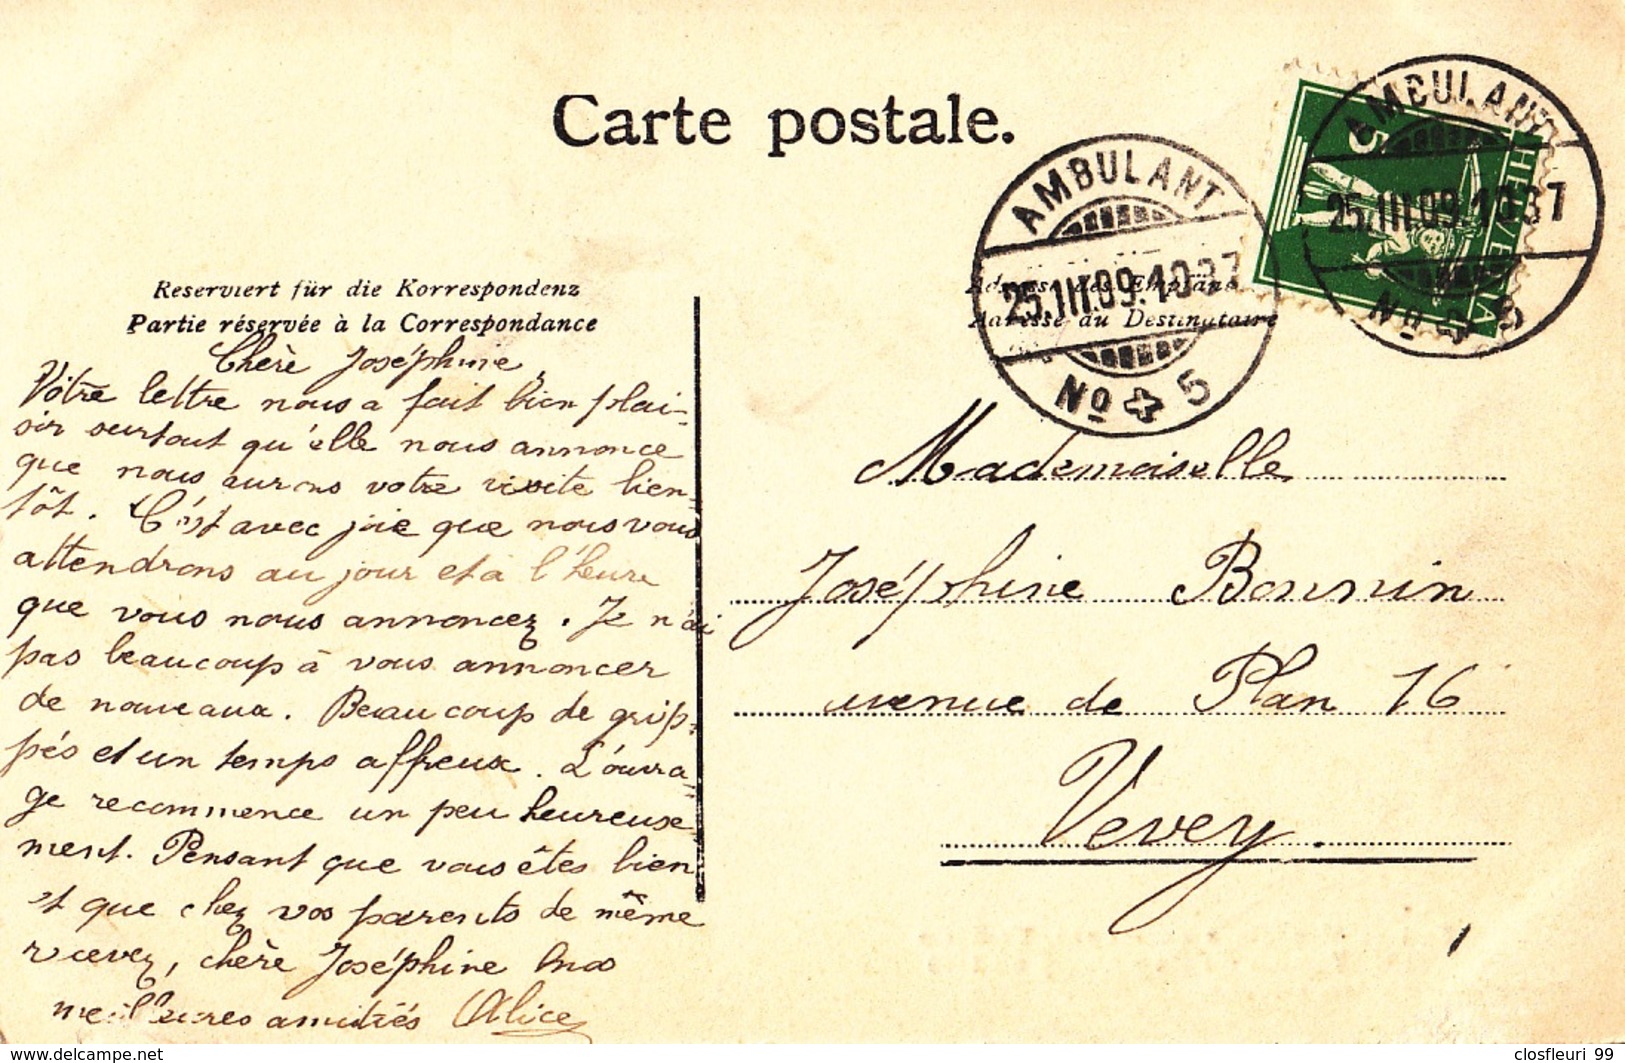 Carte postale.
AMBULANT
25.III.09.1037
No 5
AMBULANT
25.III.09.1037
No 5
5
HELVETIA
Reserviert für die Korrespondenz
Partie réservée à la Correspondance
Adresse des Empfäng
Adresse du Destinataire
Chère Joséphine,
Votre lettre nous a fait bien plai-
sir surtout qu'elle nous annonce
que nous aurons votre visite bien-
tôt. C'est avec joie que nous vous
attendrons au jour et à l'heure
que vous nous annoncez. Je n'ai
pas beaucoup à vous annoncer
de nouveaux. Beaucoup de grip-
pés et un temps affreux. L'ouvra-
ge recommence un peu heureuse-
ment. Pensant que vous êtes bien
et que chez vos parents de même
recevez, chère Joséphine nos
meilleures amitiés Alice
Mademoiselle
Joséphine Bonnin
avenue de Plan 16
Vevey.
www.delcampe.net
closfleuri 99